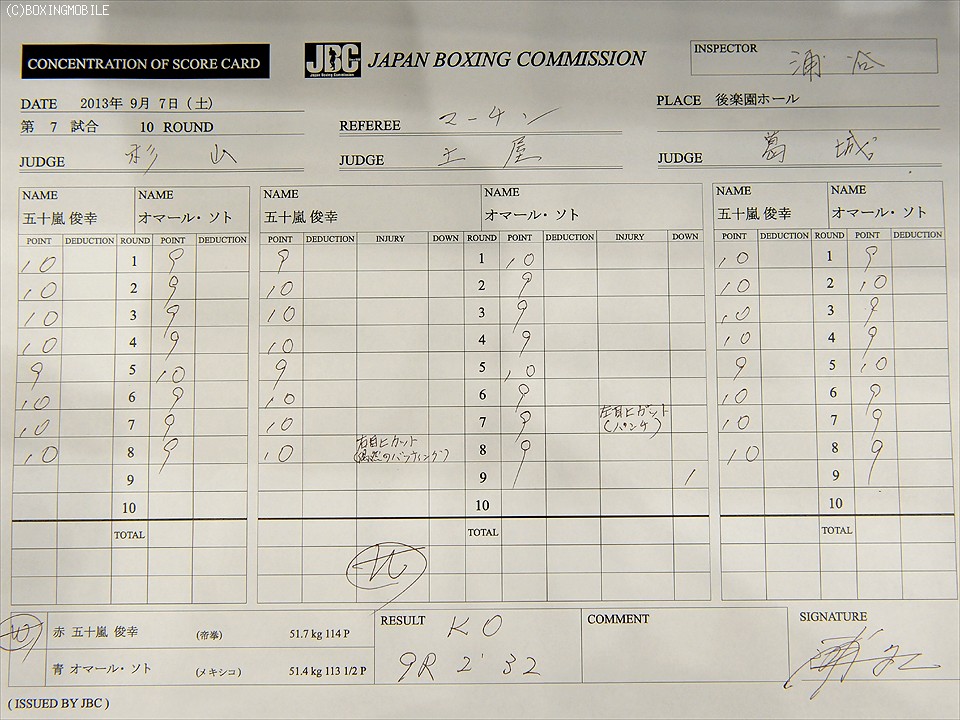 (C)BOXINGMOBILE
CONCENTRATION OF SCORE CARD
JBC
Japan Boxing Commission
JAPAN BOXING COMMISSION
INSPECTOR 浦谷
DATE 2013年 9月 7日 (土)
PLACE 後楽園ホール
第 7 試合 10 ROUND
REFEREE マーチン
JUDGE 杉山
JUDGE 土屋
JUDGE 葛城
NAME NAME NAME NAME NAME NAME
五十嵐 俊幸 オマール・ソト 五十嵐 俊幸 オマール・ソト 五十嵐 俊幸 オマール・ソト
POINT DEDUCTION ROUND POINT DEDUCTION POINT DEDUCTION INJURY DOWN ROUND POINT DEDUCTION INJURY DOWN POINT DEDUCTION ROUND POINT DEDUCTION
10 1 9 9 1 10 10 1 9
10 2 9 10 2 9 10 2 10
10 3 9 10 3 9 10 3 9
10 4 9 10 4 9 10 4 9
9 5 10 9 5 10 9 5 10
10 6 9 10 6 9 10 6 9
10 7 9 10 7 9 左目ヒカット (パンチ) 10 7 9
10 8 9 10 右目ヒカット (偶然のバッティング) 8 9 10 8 9
9 9 1 9
10 10 10
TOTAL TOTAL TOTAL
W 赤 五十嵐 俊幸 (帝拳) 51.7 kg 114 P
青 オマール・ソト (メキシコ) 51.4 kg 113 1/2 P
RESULT KO
9R 2'32
COMMENT
SIGNATURE
( ISSUED BY JBC )